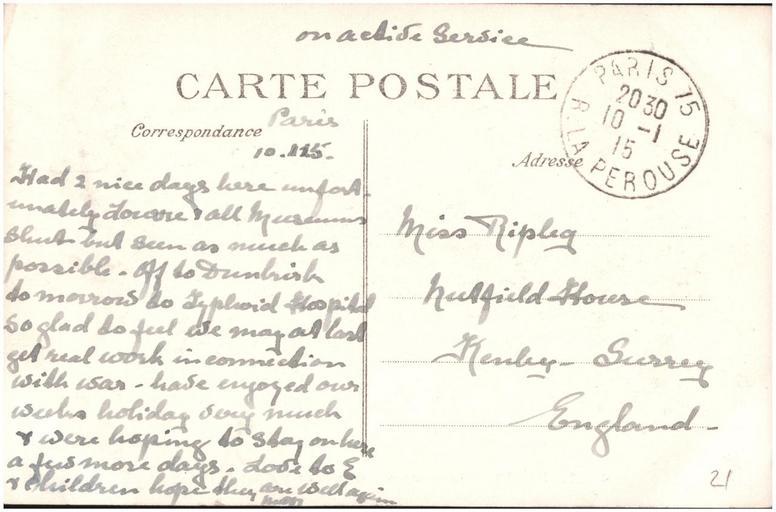 on active Service
CARTE POSTALE
PARIS 75
2030
10 -1
15
R. LA PEROUSE
Correspondance
Paris
10.1.15.
Adresse
Had 2 nice days here unfort-
unately Louvre & all Museums
shut but seen as much as
possible - Off to Dunkirk
to morrow to Typhoid Hospital
so glad to feel we may at last
get real work in connection
with war - have enjoyed our
weeks holiday very much
& were hoping to stay on here
a few more days. Love to E
& children hope they are well again
Miss Ripley
Nutfield House
Kenley - Surrey
England -
21